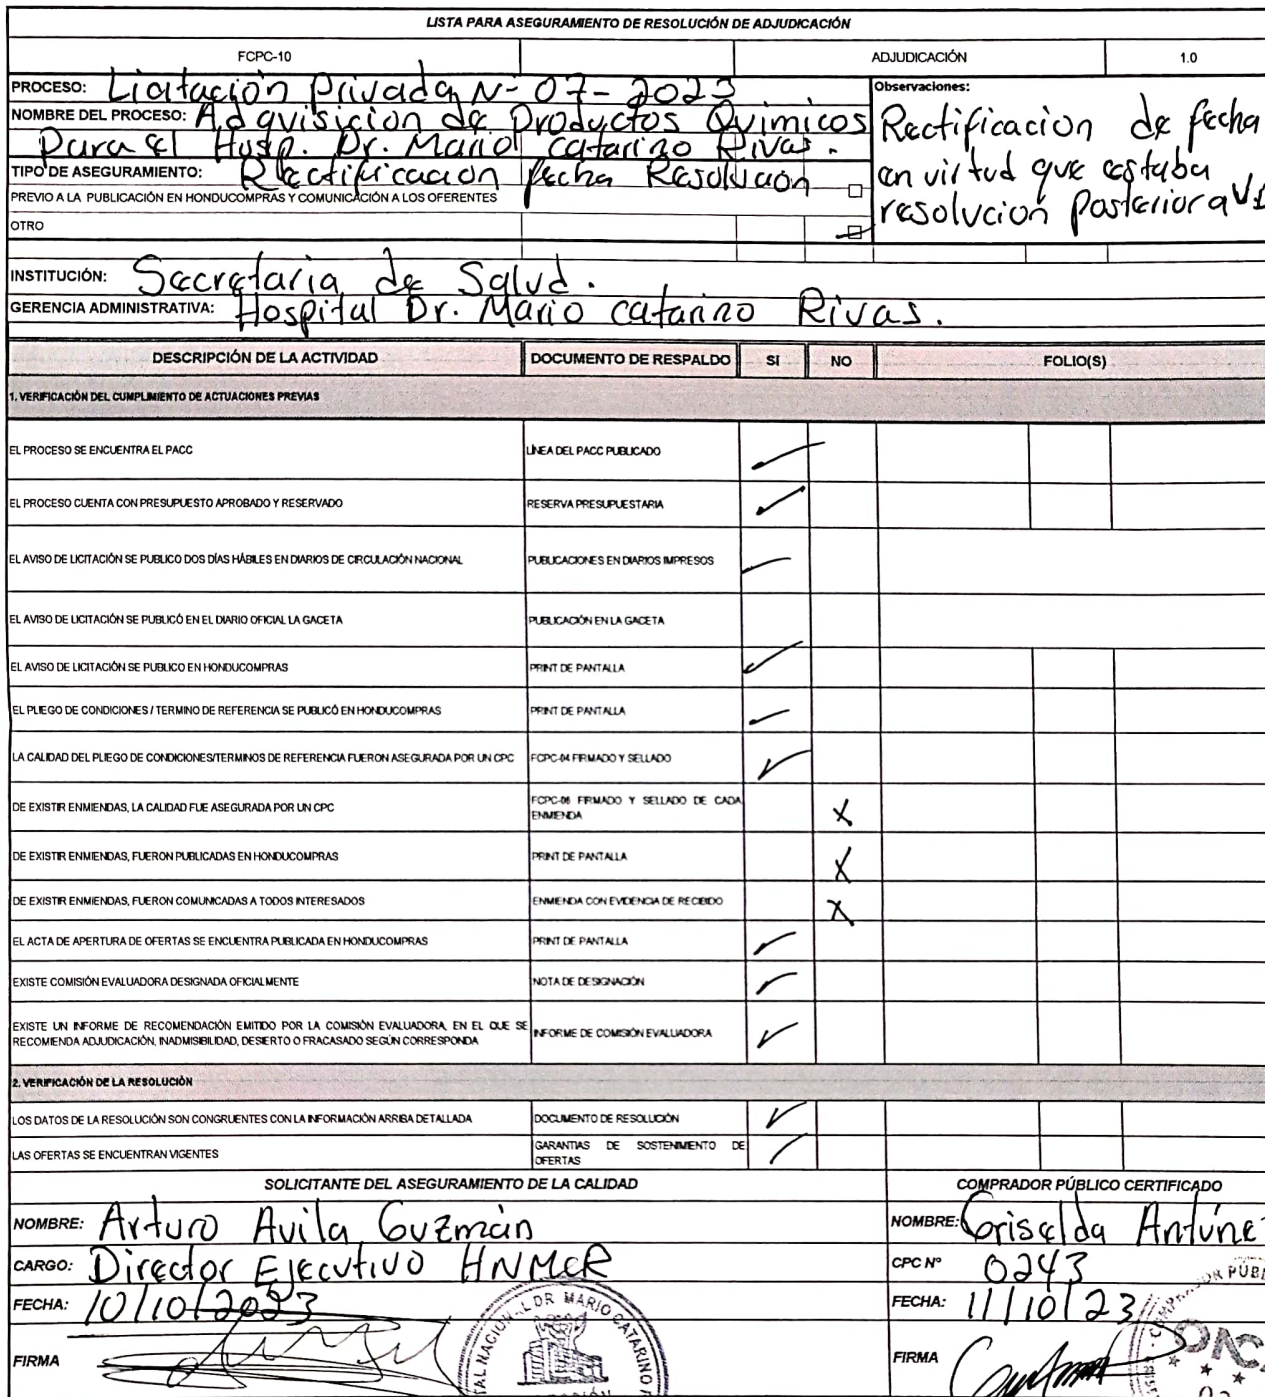 LISTA PARA ASEGURAMIENTO DE RESOLUCIÓN DE ADJUDICACIÓN
FCPC-10 ADJUDICACIÓN 1.0
PROCESO: Licitación Privada N- 07-2023
NOMBRE DEL PROCESO: Adquisicion de Productos Quimicos
Para el Hosp. Dr. Mario Catarino Rivas.
TIPO DE ASEGURAMIENTO: Rectificacion fecha Resolucion
PREVIO A LA PUBLICACIÓN EN HONDUCOMPRAS Y COMUNICACIÓN A LOS OFERENTES
OTRO
Observaciones:
Rectificacion de fecha
en virtud que estaba
resolucion posterior a
INSTITUCIÓN: Secretaria de Salud.
GERENCIA ADMINISTRATIVA: Hospital Dr. Mario Catarino Rivas.
DESCRIPCIÓN DE LA ACTIVIDAD DOCUMENTO DE RESPALDO SI NO FOLIO(S)
1. VERIFICACIÓN DEL CUMPLIMIENTO DE ACTUACIONES PREVIAS
EL PROCESO SE ENCUENTRA EL PACC LÍNEA DEL PACC PUBLICADO ✓
EL PROCESO CUENTA CON PRESUPUESTO APROBADO Y RESERVADO RESERVA PRESUPUESTARIA ✓
EL AVISO DE LICITACIÓN SE PUBLICO DOS DÍAS HÁBILES EN DIARIOS DE CIRCULACIÓN NACIONAL PUBLICACIONES EN DIARIOS IMPRESOS ✓
EL AVISO DE LICITACIÓN SE PUBLICÓ EN EL DIARIO OFICIAL LA GACETA PUBLICACIÓN EN LA GACETA
EL AVISO DE LICITACIÓN SE PUBLICO EN HONDUCOMPRAS PRINT DE PANTALLA ✓
EL PLIEGO DE CONDICIONES / TERMINO DE REFERENCIA SE PUBLICÓ EN HONDUCOMPRAS PRINT DE PANTALLA ✓
LA CALIDAD DEL PLIEGO DE CONDICIONES/TERMINOS DE REFERENCIA FUERON ASEGURADA POR UN CPC FCPC-04 FIRMADO Y SELLADO ✓
DE EXISTIR ENMIENDAS, LA CALIDAD FUE ASEGURADA POR UN CPC FCPC-06 FIRMADO Y SELLADO DE CADA X
ENMIENDA
DE EXISTIR ENMIENDAS, FUERON PUBLICADAS EN HONDUCOMPRAS PRINT DE PANTALLA X
DE EXISTIR ENMIENDAS, FUERON COMUNICADAS A TODOS INTERESADOS ENMIENDA CON EVIDENCIA DE RECIBIDO X
EL ACTA DE APERTURA DE OFERTAS SE ENCUENTRA PUBLICADA EN HONDUCOMPRAS PRINT DE PANTALLA ✓
EXISTE COMISIÓN EVALUADORA DESIGNADA OFICIALMENTE NOTA DE DESIGNACIÓN ✓
EXISTE UN INFORME DE RECOMENDACIÓN EMITIDO POR LA COMISIÓN EVALUADORA, EN EL QUE SE
RECOMIENDA ADJUDICACIÓN, INADMISIBILIDAD, DESIERTO O FRACASADO SEGÚN CORRESPONDA INFORME DE COMISIÓN EVALUADORA ✓
2. VERIFICACIÓN DE LA RESOLUCIÓN
LOS DATOS DE LA RESOLUCIÓN SON CONGRUENTES CON LA INFORMACIÓN ARRIBA DETALLADA DOCUMENTO DE RESOLUCIÓN ✓
LAS OFERTAS SE ENCUENTRAN VIGENTES GARANTIAS DE SOSTENIMIENTO DE ✓
OFERTAS
SOLICITANTE DEL ASEGURAMIENTO DE LA CALIDAD
NOMBRE: Arturo Avila Guzmán
CARGO: Director Ejecutivo HNMCR
FECHA: 10/10/2023
FIRMA
DR MARIO CATARINO
COMPRADOR PÚBLICO CERTIFICADO
NOMBRE: Griselda Antúne
CPC N° 0243
FECHA: 11/10/23
FIRMA